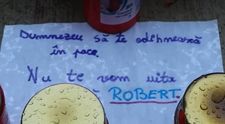 Dumnezeu să te odihnească
în pace.
Nu te vom uita
ROBERT.